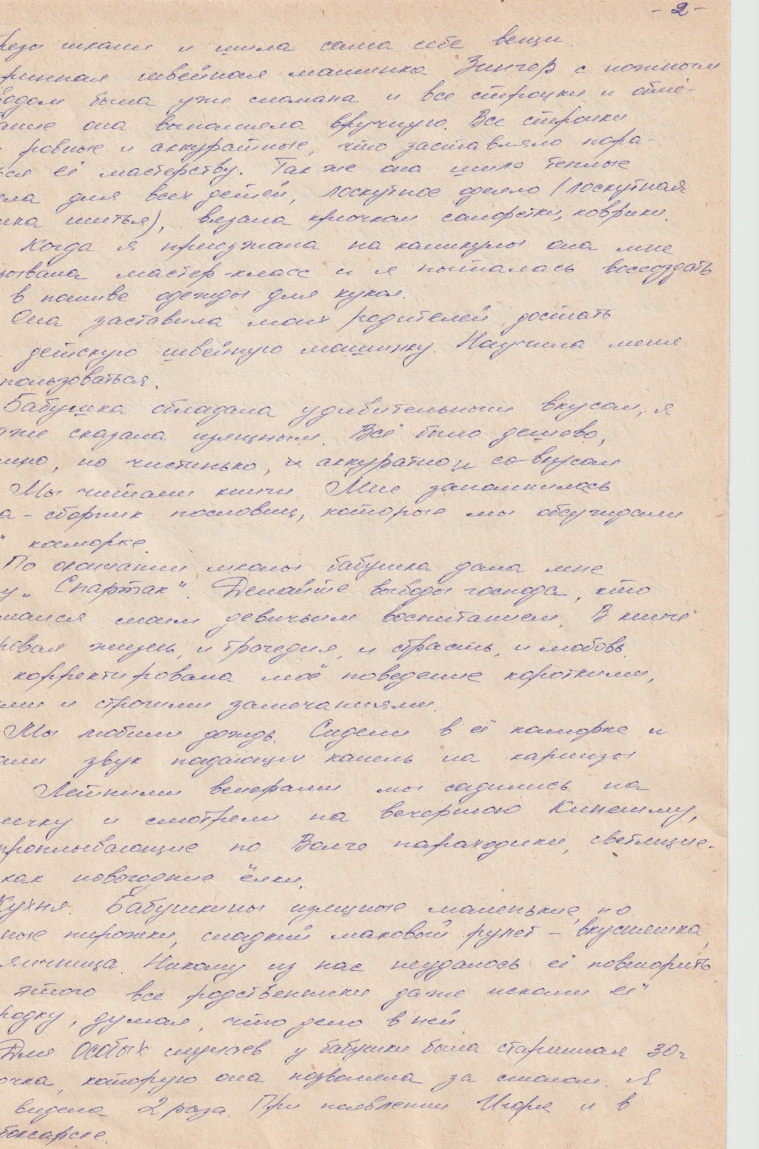 - 2 -
резы ткани и шила сама себе вещи.
ринная швейная машинка Зингер с ножным
водом была уже сломана и все строчки и отме-
она выполняла вручную. Все строчки
ровные и аккуратные, что заставляло пора-
ся её мастерству. Так же она шила теплые
ла для всех детей, лоскутное одеяло (лоскутная
ика шитья), вязала крючком салфетки, коврики.
Когда я приезжала на каникулы она мне
зывала мастер-класс и я пыталась воссоздать
в пошиве одежды для кукол.
Она заставила моих родителей достать
детскую швейную машинку. Научила меня
пользоваться.
Бабушка обладала удивительным вкусом, я
же сказала изящным. Всё было дешево,
но чистинько, и аккуратно и со вкусом
Мы читали книги. Мне запомнилось
а - сборник пословиц, которые мы обсуждали
коморке.
По окончании школы бабушка дала мне
у „Спартак". Делайте выводы господа, кто
мался моим девичьим воспитанием. В книге
ровая жизнь, и трагедия, и страсть, и любовь.
корректировала моё поведение короткими,
ми и строгими замечаниями.
Мы любили дождь. Сидели в её каморке и
али звук падающих капель на карнизы
Летними вечерами мы садились на
ечку и смотрели на вечернюю Кинешму,
проплывающие по Волге параходики, светящие-
как новогодние ёлки.
Кухня. Бабушкины изящные маленькие, но
ные пирожки, сладкий маковый рулет - вкусняшка,
яичница. Никому из нас неудалось её повторить
этого все родственники даже искали её
родку, думая, что дело в ней
Для особых случаев у бабушки была старинная 30г
очка, которую она позволяла за столом. Я
видела 2 раза. При появлении Игоря и в
боксарске.